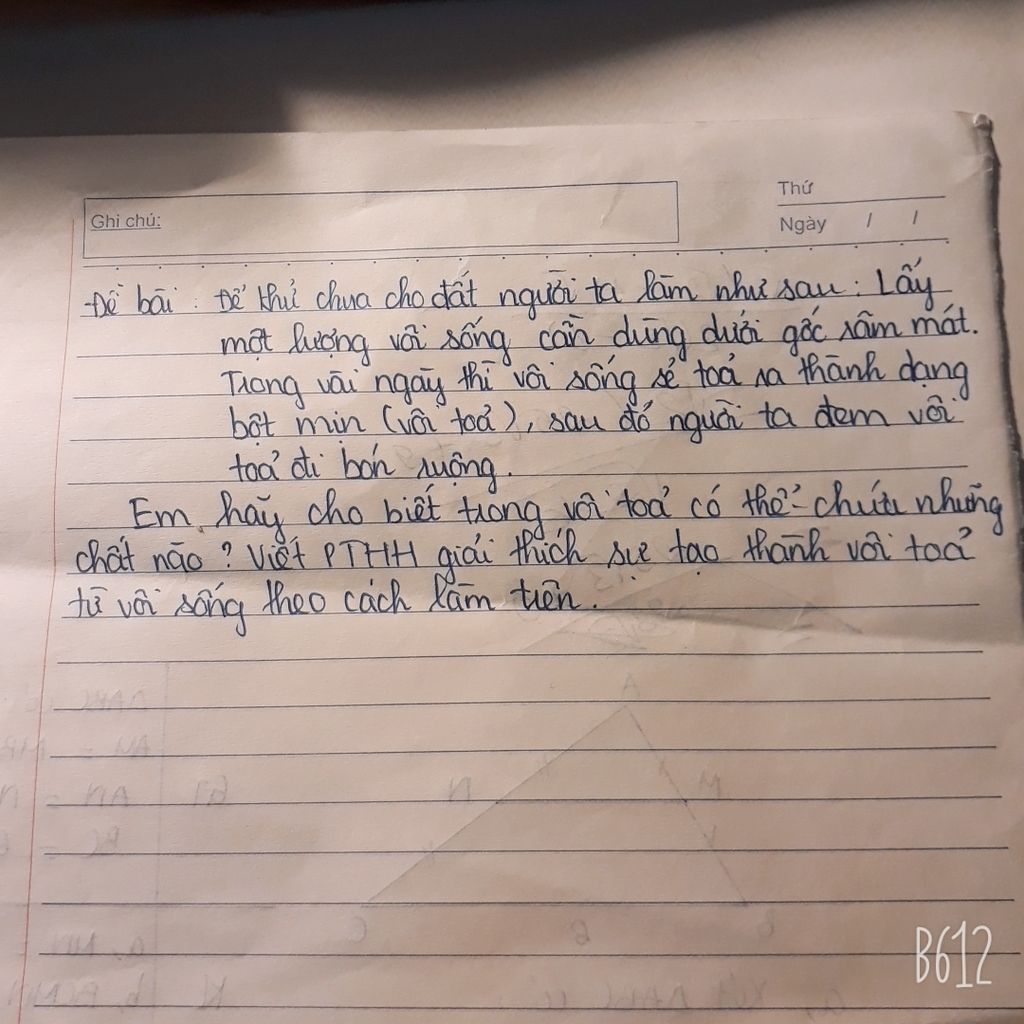 Ghi chú:
Thứ
Ngày / /
-Đề bài : Để khử chua cho đất người ta làm như sau : Lấy
một lượng vôi sống cần dùng dưới gốc râm mát.
Trong vài ngày thì vôi sống sẽ toả ra thành dạng
bột mịn (vôi toả), sau đó người ta đem vôi
toả đi bón ruộng.
Em hãy cho biết trong vôi toả có thể chứa những
chất nào ? Viết PTHH giải thích sự tạo thành vôi toả
từ vôi sống theo cách làm trên.
B612